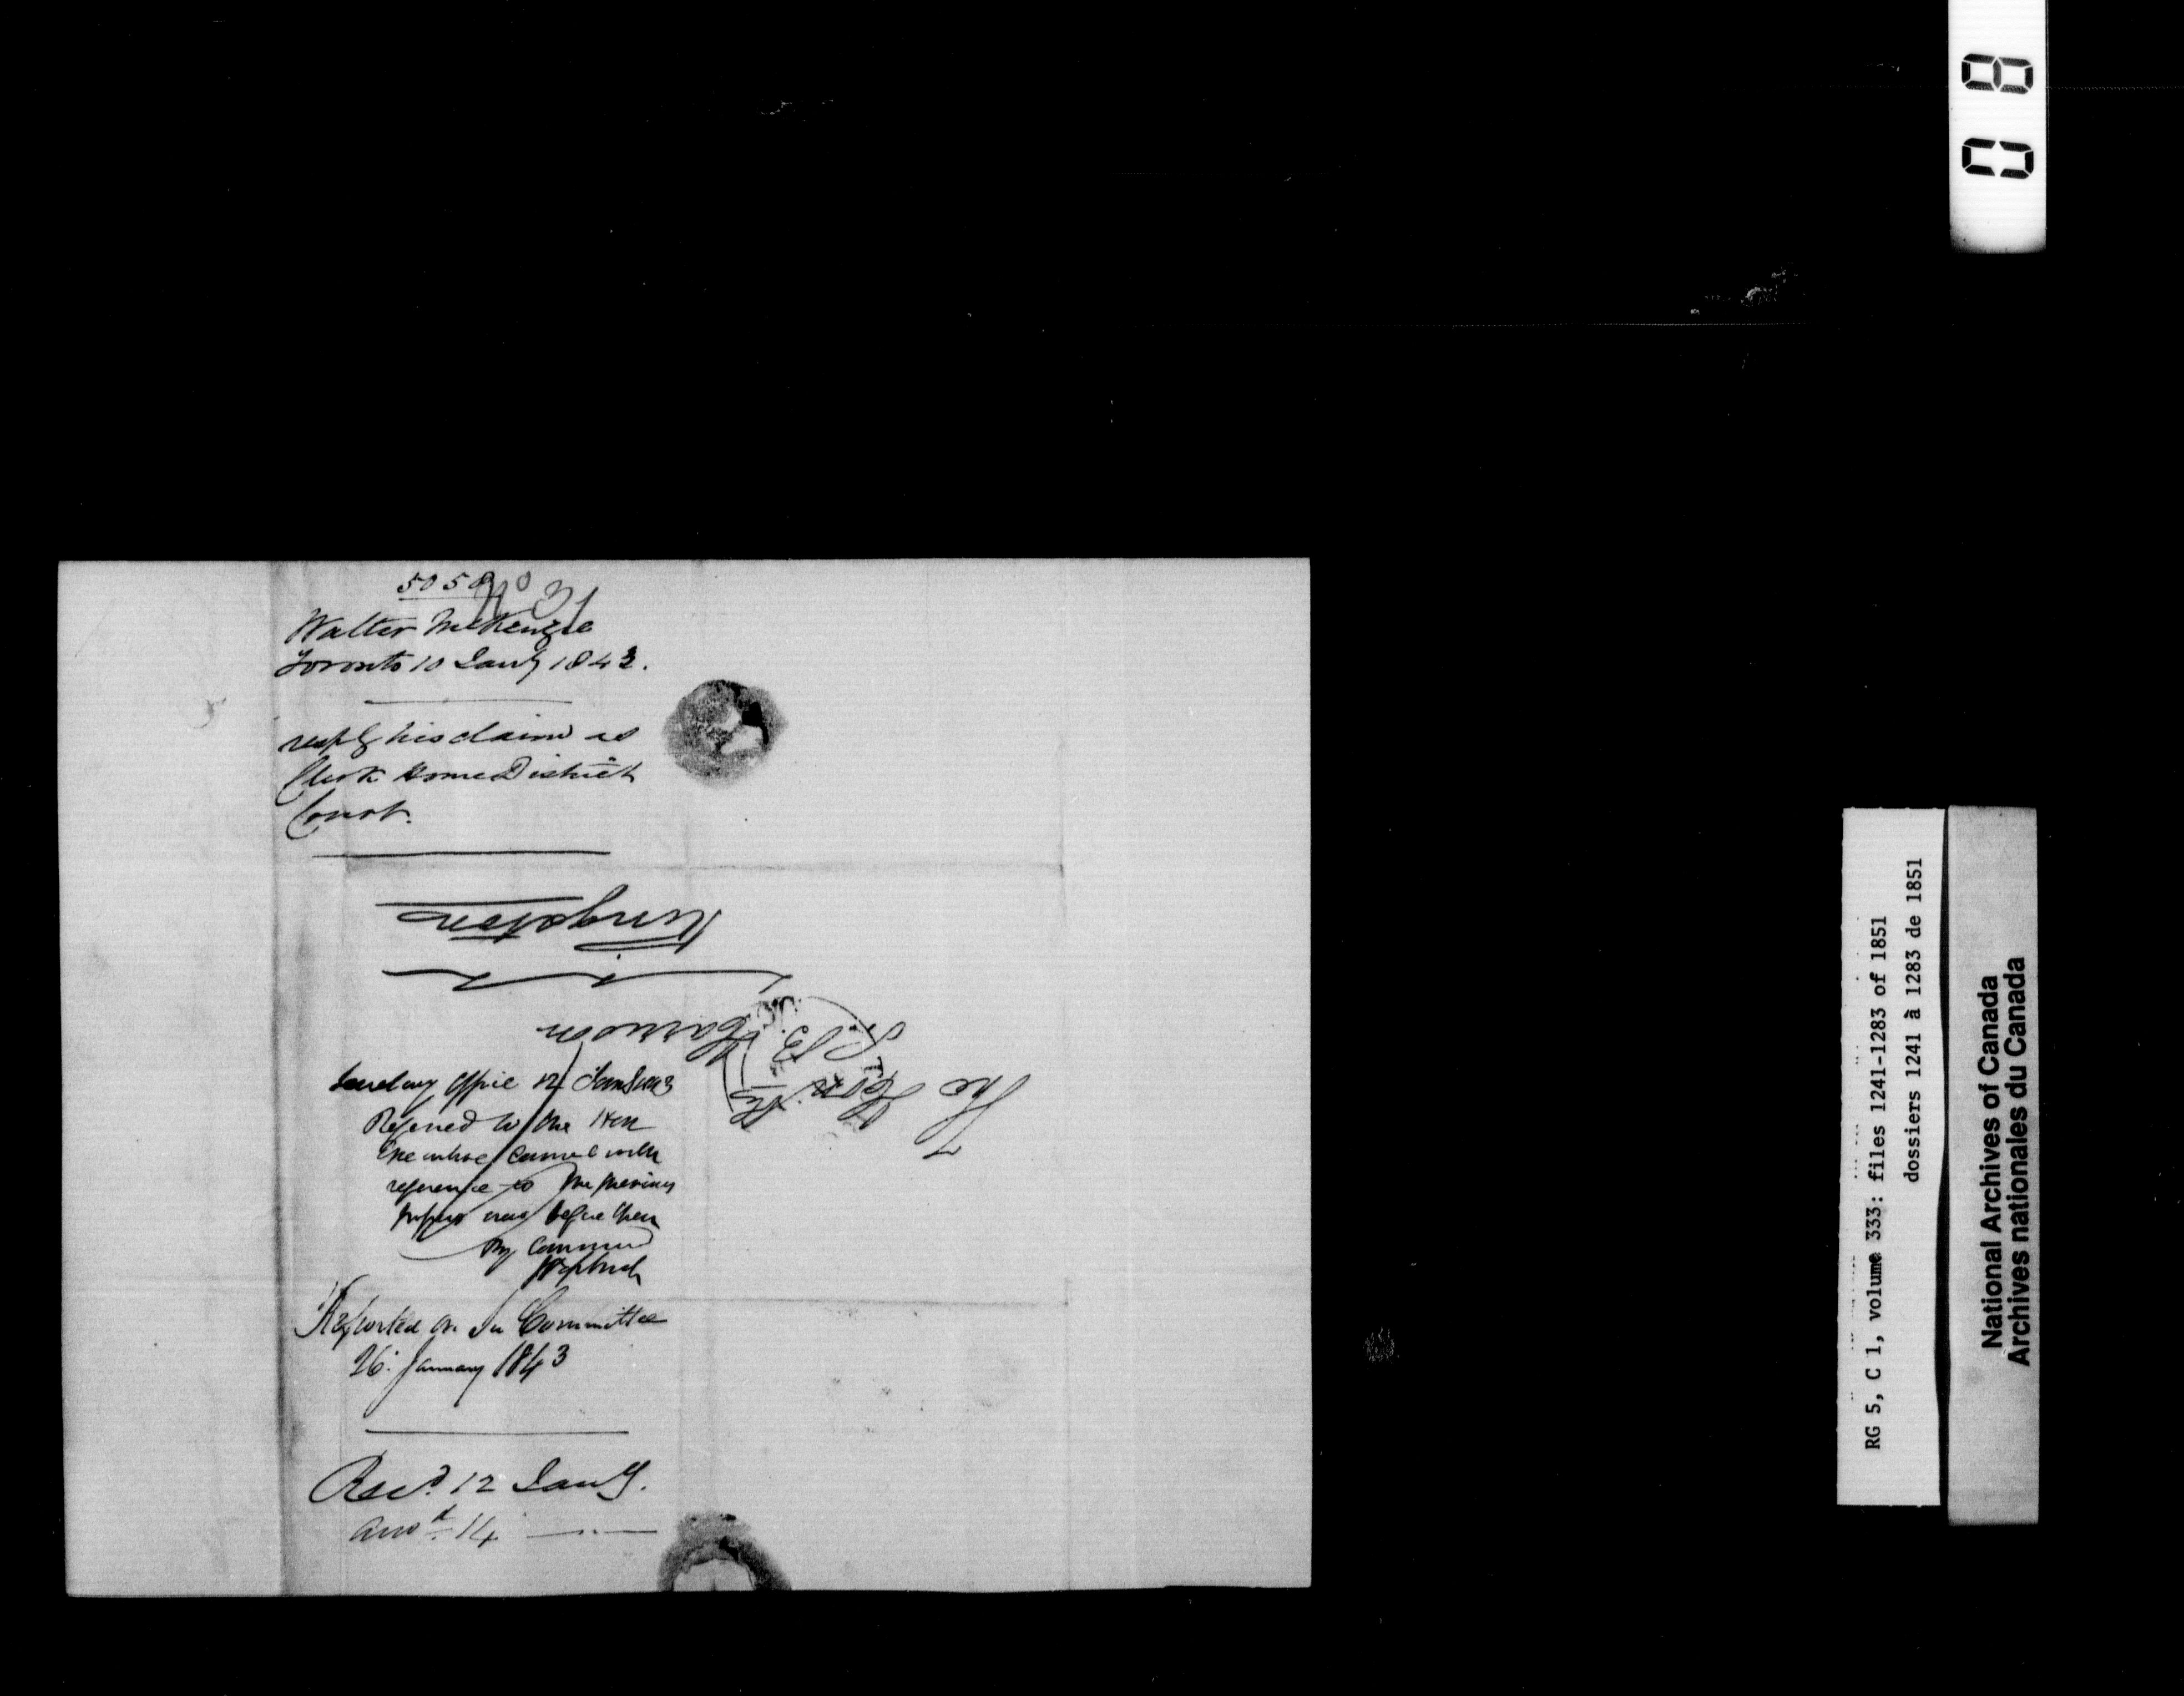 5058
No 31
Walter McKenzie
Toronto 10 Jany 1843.
respg his claim as
Clerk Home District
Court.
The Honble
S. B. Harrison
Kingston
Secretary Office 12 Jany 1843
Referred to the Hon
Executive Council with
reference to the previous
papers now before them
By Command
Reported on In Committee
26. January 1843
Recd. 12 Jany.
Ansd. 14 —
08
RG 5, C 1, volume 333: files 1241-1283 of 1851
dossiers 1241 à 1283 de 1851
National Archives of Canada
Archives nationales du Canada